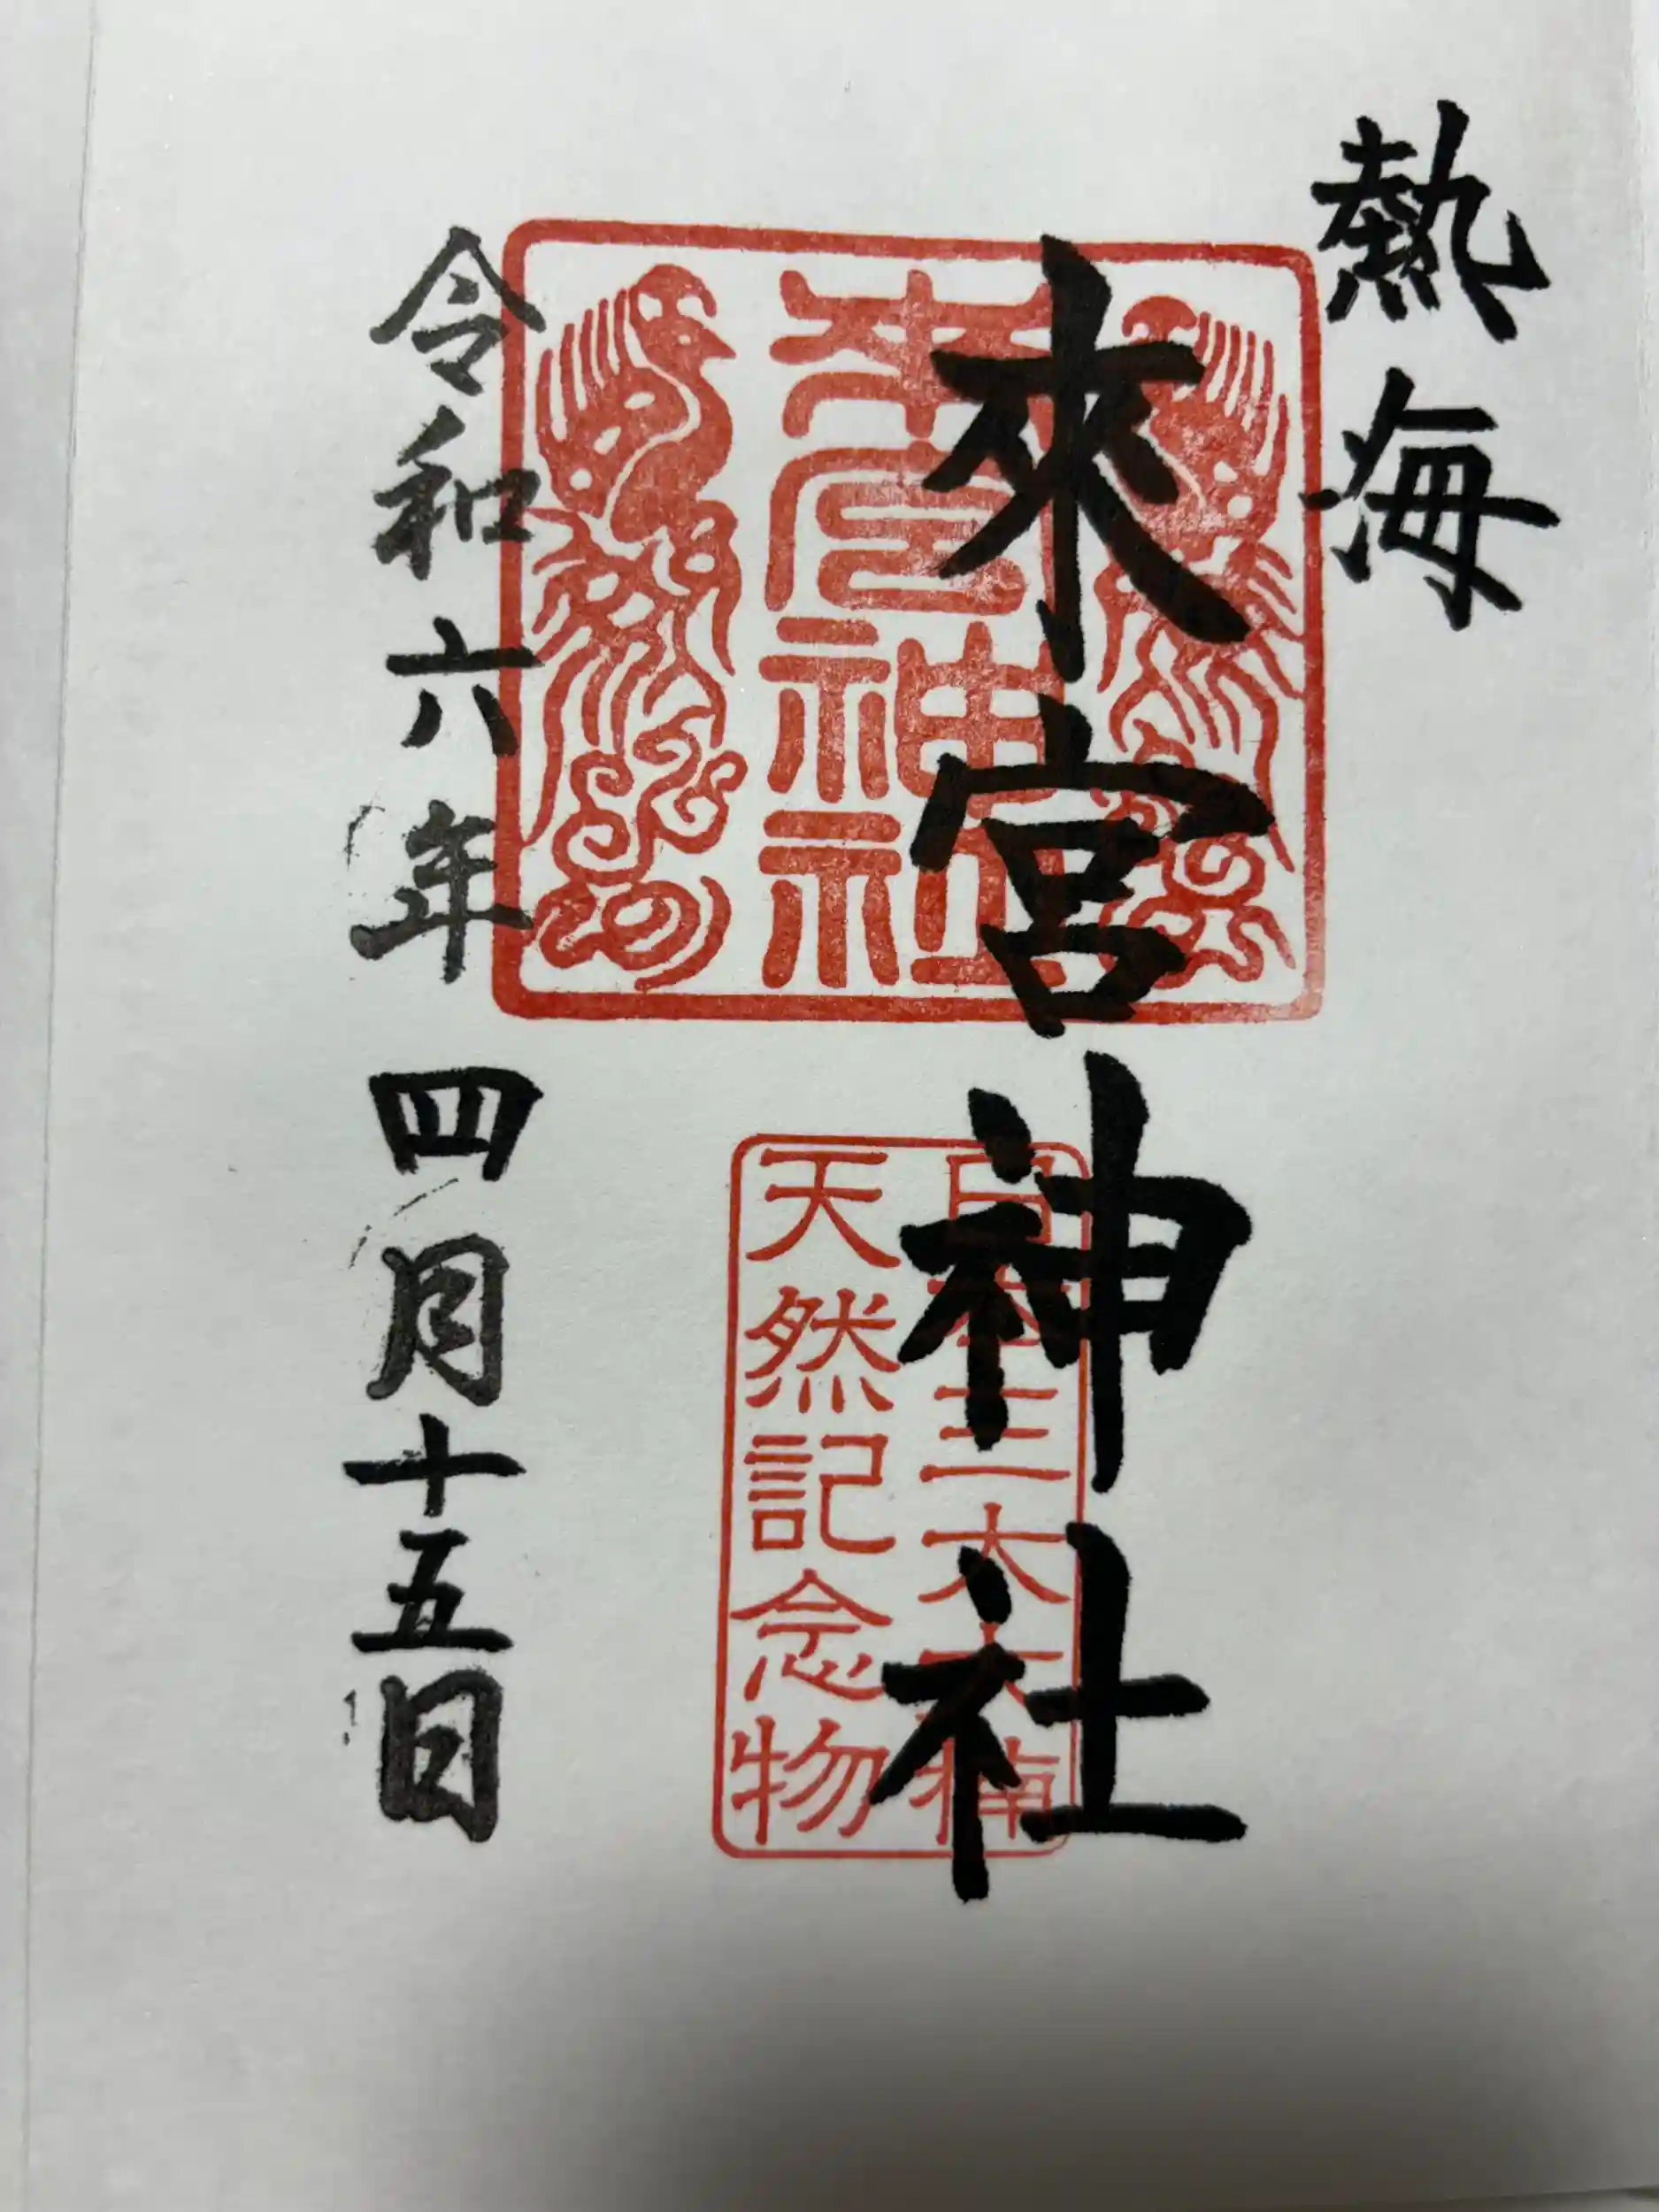 熱海
來宮神社
來宮神社
日本三大大楠
天然記念物
令和六年四月十五日